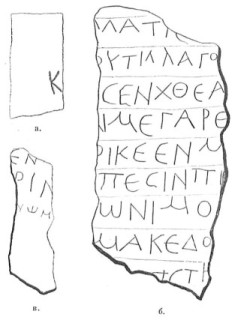 Κ
а.
ΕΝ
ΡΙΝ
ΥΨΜ
в.
ΛΑΤΙ
ΥΤΙΛΑΓΟ
CΕΝΧΘΕΑ
ΝΜΕΓΑΡΕ
ΡΙΚΕΕΝΜ
ΠΕCΙΝΠ
ΩΝΙΜΟ
ΜΑΚΕΔΟ
CΤΗ
б.